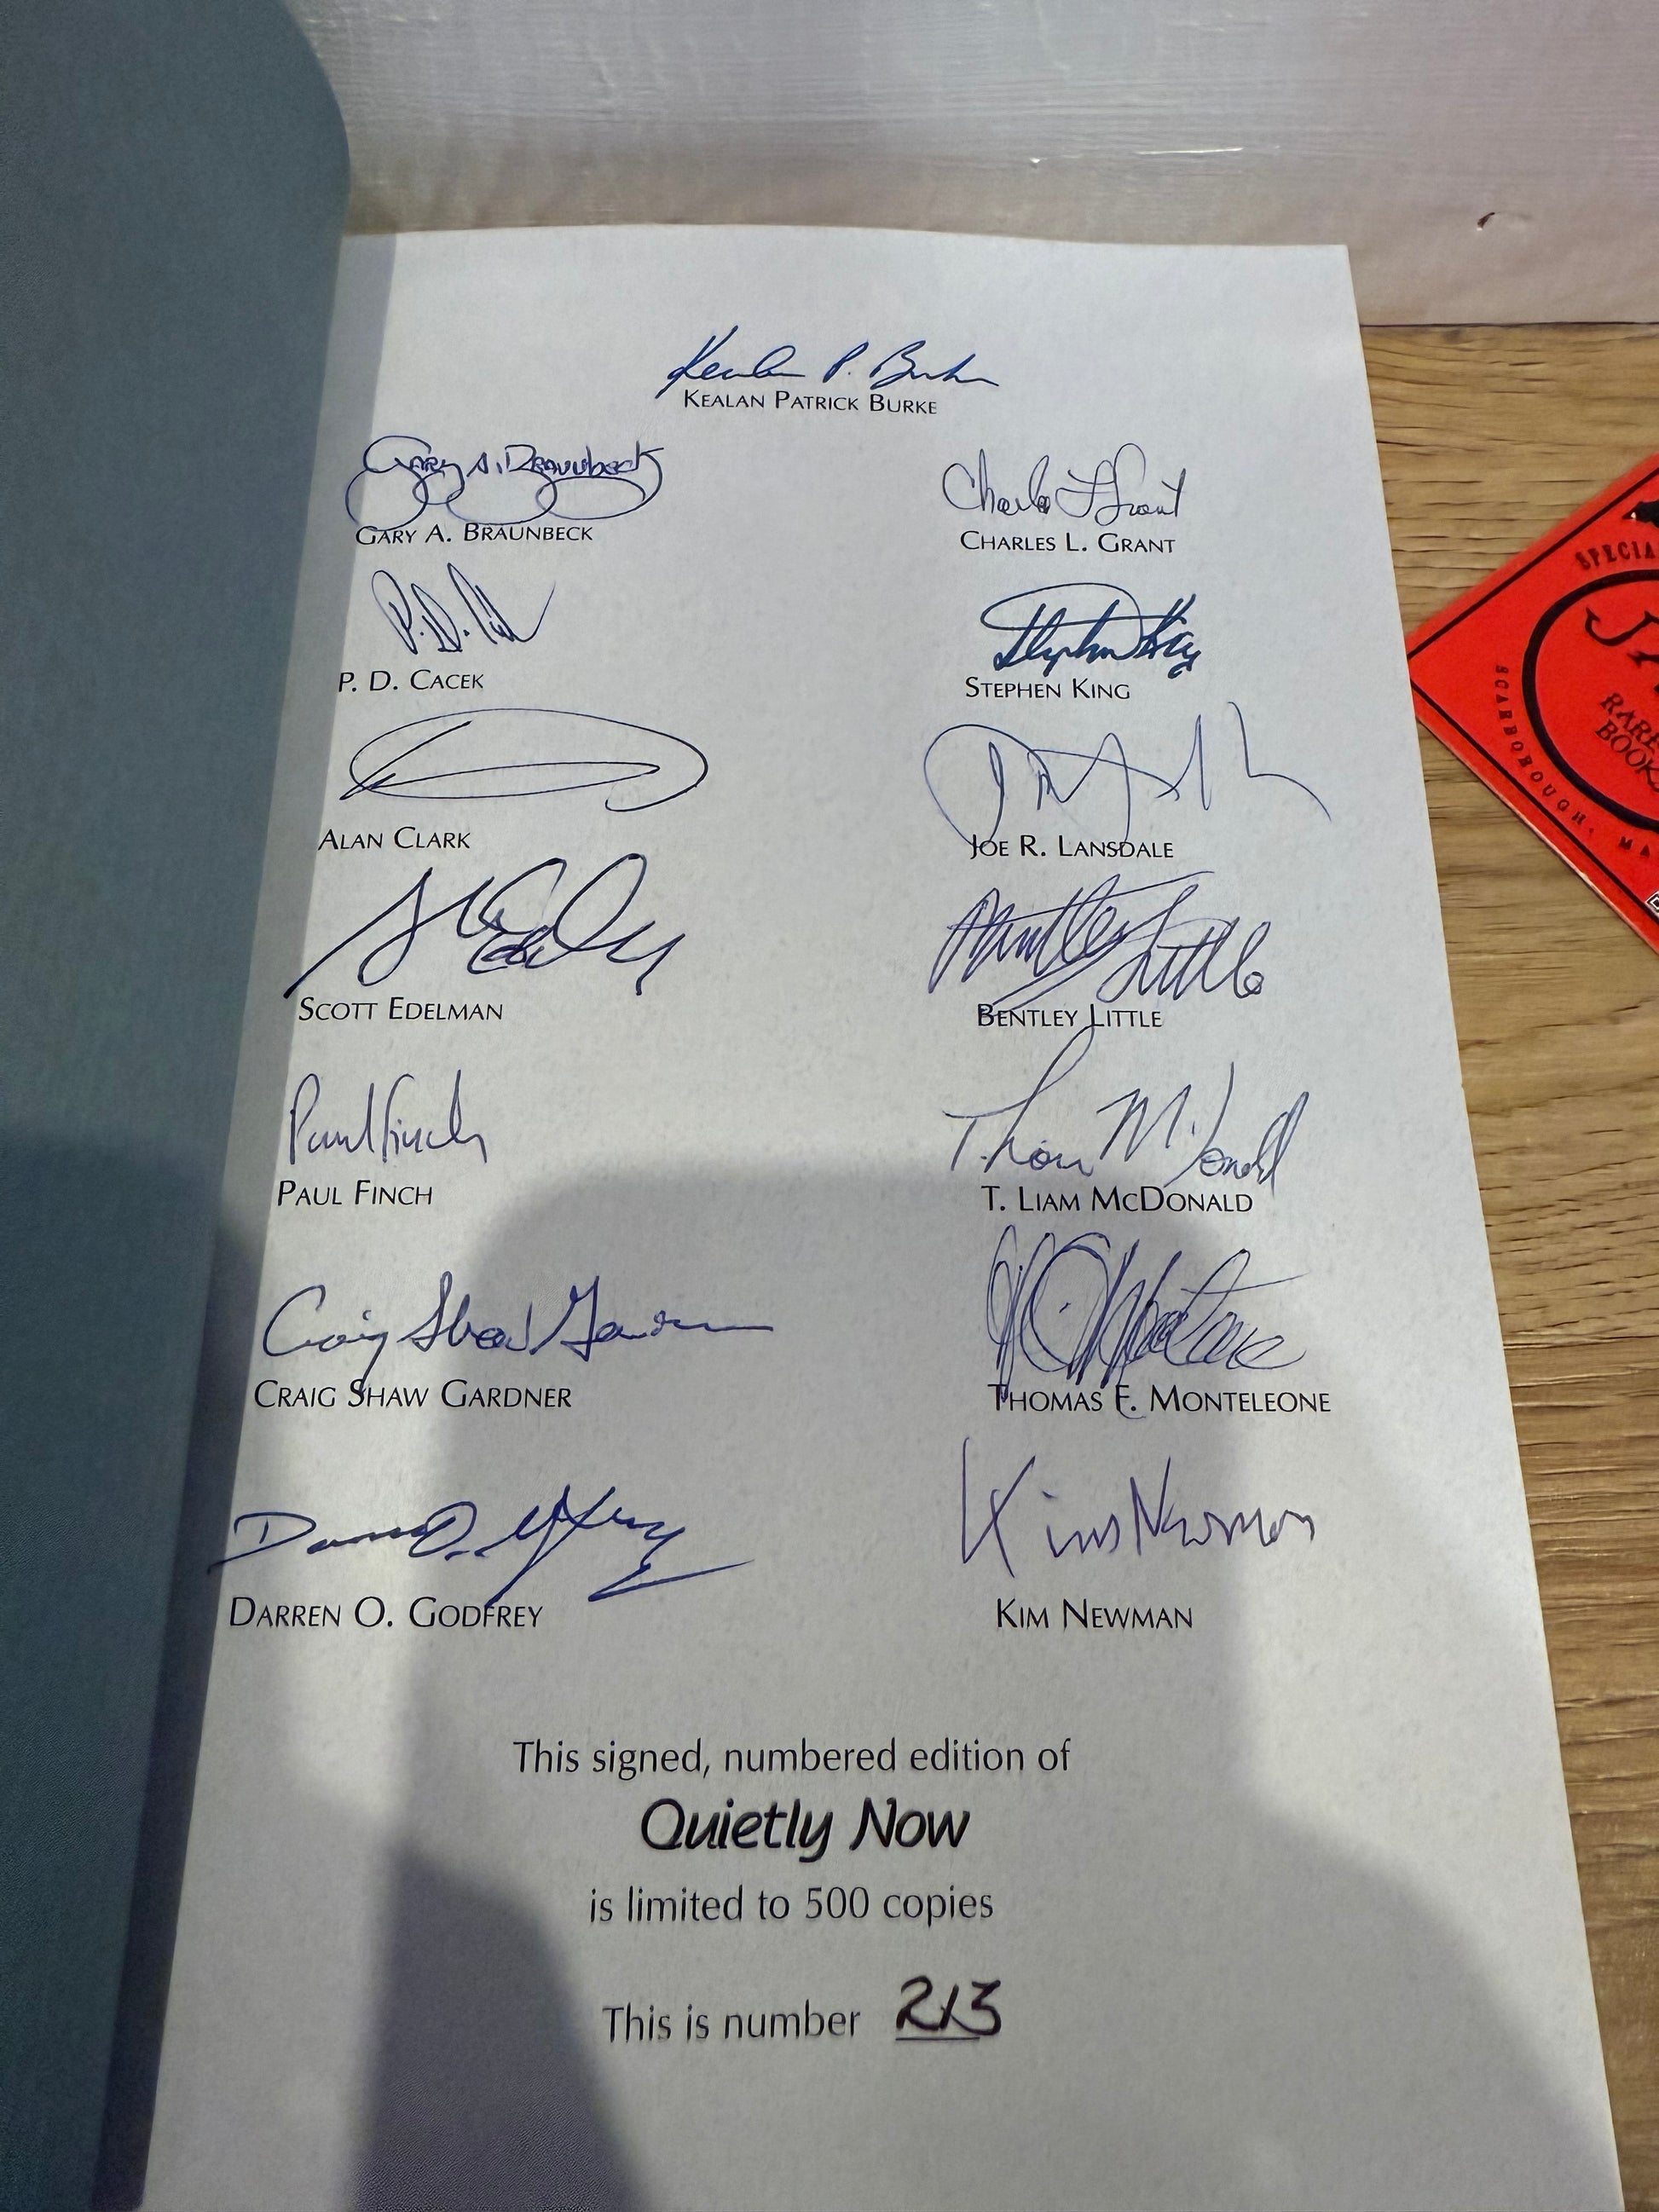 Kealan P. Burke
KEALAN PATRICK BURKE
Gary A. Braunbeck
GARY A. BRAUNBECK
Charles L Grant
CHARLES L. GRANT
P. D. CACEK
Stephen King
STEPHEN KING
ALAN CLARK
JOE R. LANSDALE
SCOTT EDELMAN
Bentley Little
BENTLEY LITTLE
Paul Finch
PAUL FINCH
T. LIAM MCDONALD
Craig Shaw Gardner
CRAIG SHAW GARDNER
THOMAS F. MONTELEONE
Darren O. Godfrey
DARREN O. GODFREY
Kim Newman
KIM NEWMAN
This signed, numbered edition of
Quietly Now
is limited to 500 copies
This is number 213
SPECIA
RARE
BOOK
SCARBOROUGH, MA